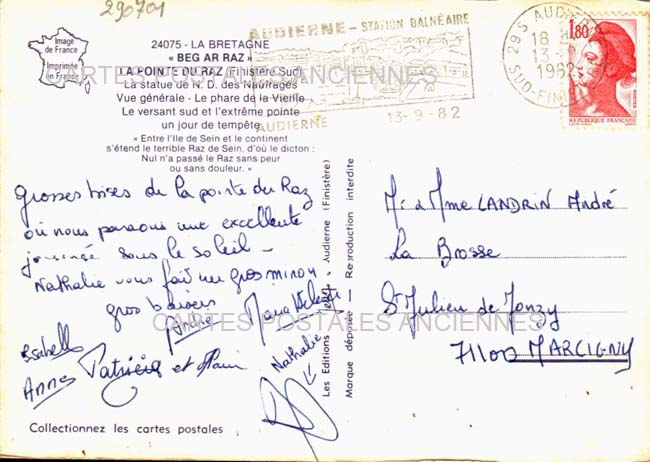 290701
Image
de France
Imprimée
en France
24075 - LA BRETAGNE
« BEG AR RAZ »
LA POINTE DU RAZ (Finistère Sud)
La statue de N. D. des Naufragés
Vue générale - Le phare de la Vieille
Le versant sud et l'extrême pointe
un jour de tempête
« Entre l'Ile de Sein et le continent
s'étend le terrible Raz de Sein, d'où le dicton :
Nul n'a passé le Raz sans peur
ou sans douleur. »
AUDIERNE - STATION BALNÉAIRE
AUDIERNE
13-9-82
29 S AUDIERNE
18 H
13-9
1982
SUD-FINISTERE
1,80
POSTES
REPUBLIQUE FRANÇAISE
CARTES POSTALES ANCIENNES
Grosses bises de la pointe du Raz
où nous passons une excellente
journée sous le soleil -
Nathalie vous fait un gros minou.
gros baisers
André
Isabelle
Anne Patricia et Alain
Nathalie
CARTES POSTALES ANCIENNES
Les Editions Audierne (Finistère)
Marque déposée - Reproduction interdite
Mr & Mme LANDRIN André
La Brosse
St Julien de Jonzy
71100 MARCIGNY
Collectionnez les cartes postales